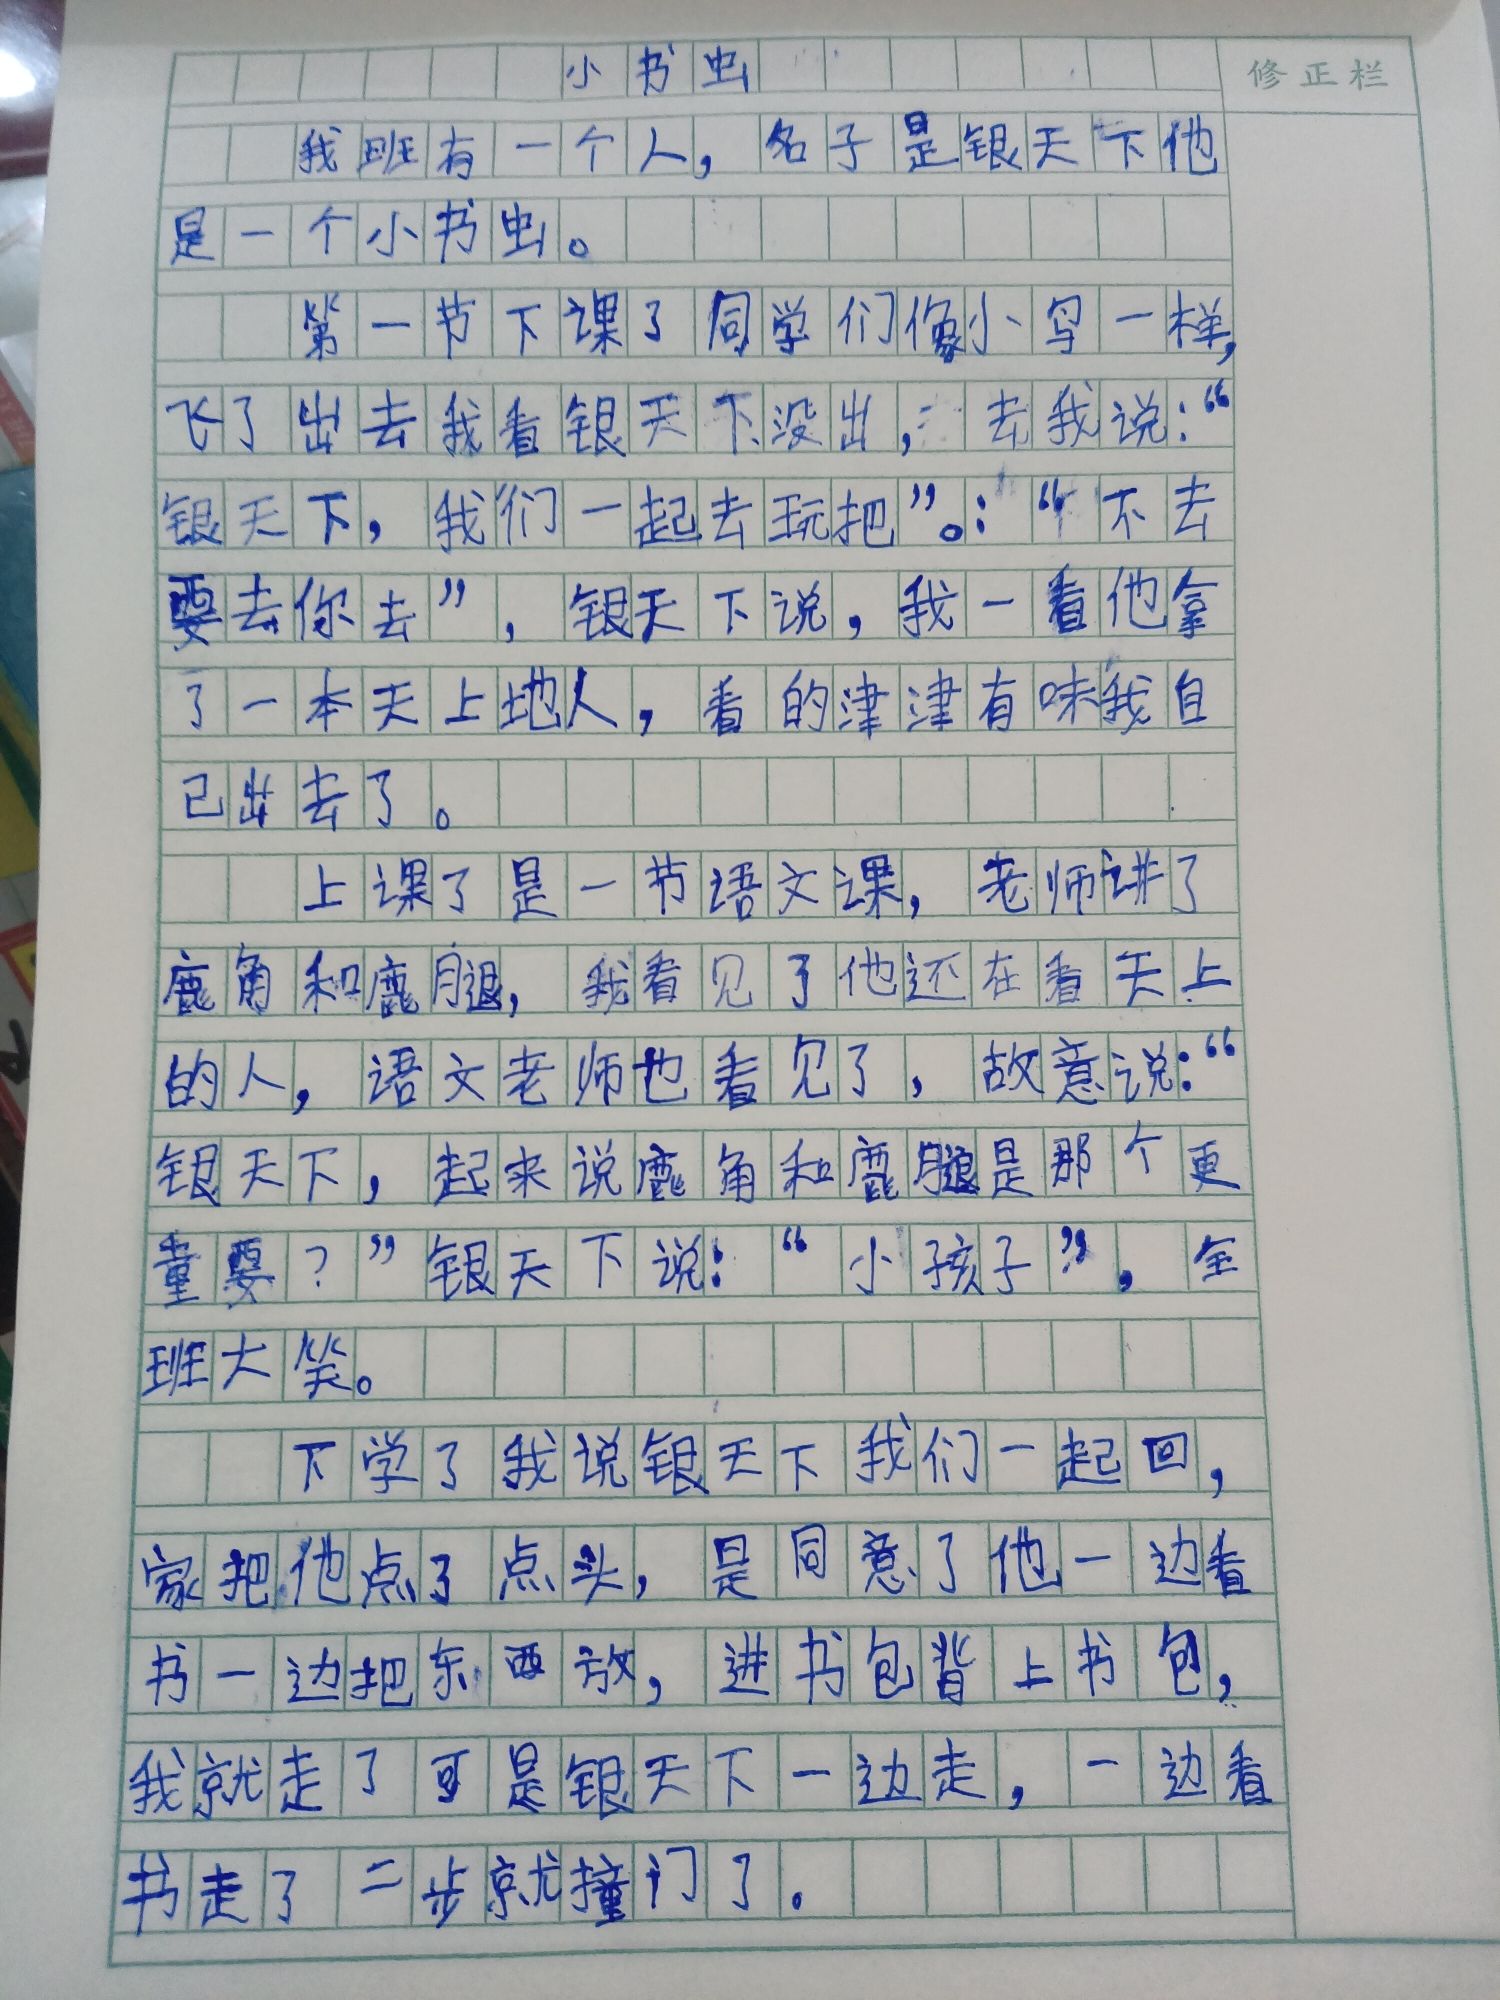 小书虫
修正栏
我班有一个人，名子是银天下他
是一个小书虫。
第一节下课了同学们像小鸟一样，
飞了出去我看银天下没出，去我说：“
银天下，我们一起去玩把”。：“不去
要去你去”，银天下说，我一看他拿
了一本天上地人，看的津津有味我自
己出去了。
上课了是一节语文课，老师讲了
鹿角和鹿腿，我看见了他还在看天上
的人，语文老师也看见了，故意说：“
银天下，起来说鹿角和鹿腿是那个更
重要？”银天下说：“小孩子”，全
班大笑。
下学了我说银天下我们一起回，
家把他点了点头，是同意了他一边看
书一边把东西放，进书包背上书包，
我就走了可是银天下一边走，一边看
书走了二步就撞门了。